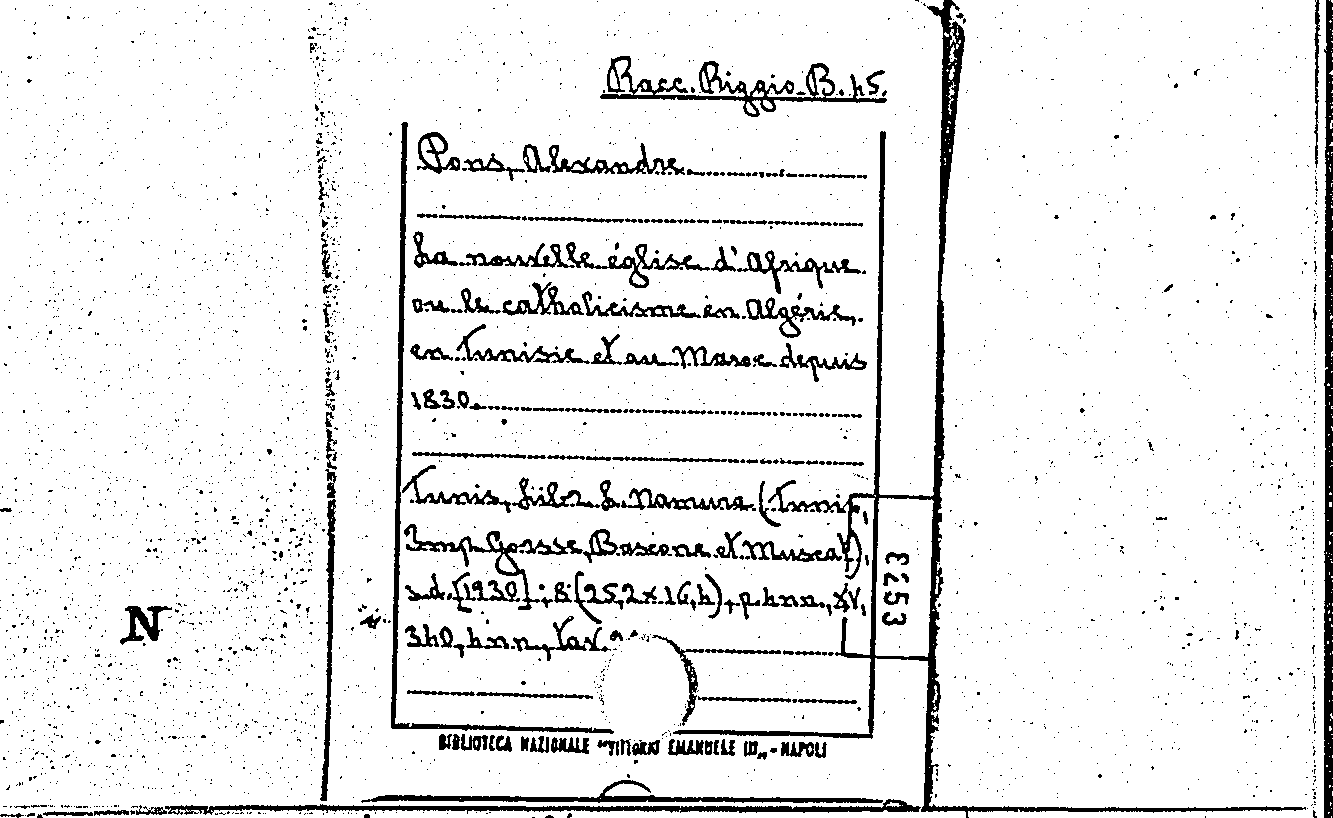 Racc. Riggio B. 45.
Pons, Alexandre.
La nouvelle église d'Afrique
ou le catholicisme en Algérie,
en Tunisie et au Maroc depuis
1830.
Tunis, Libr. L. Namura (Tunis,
Imp. Gorsse, Bascone et Muscat),
s.d. [1930]; 8° (25,2x16,4), p. 4nn., XV,
340, 4nn., tav.
3253
N
BIBLIOTECA NAZIONALE "VITTORIO EMANUELE III" - NAPOLI